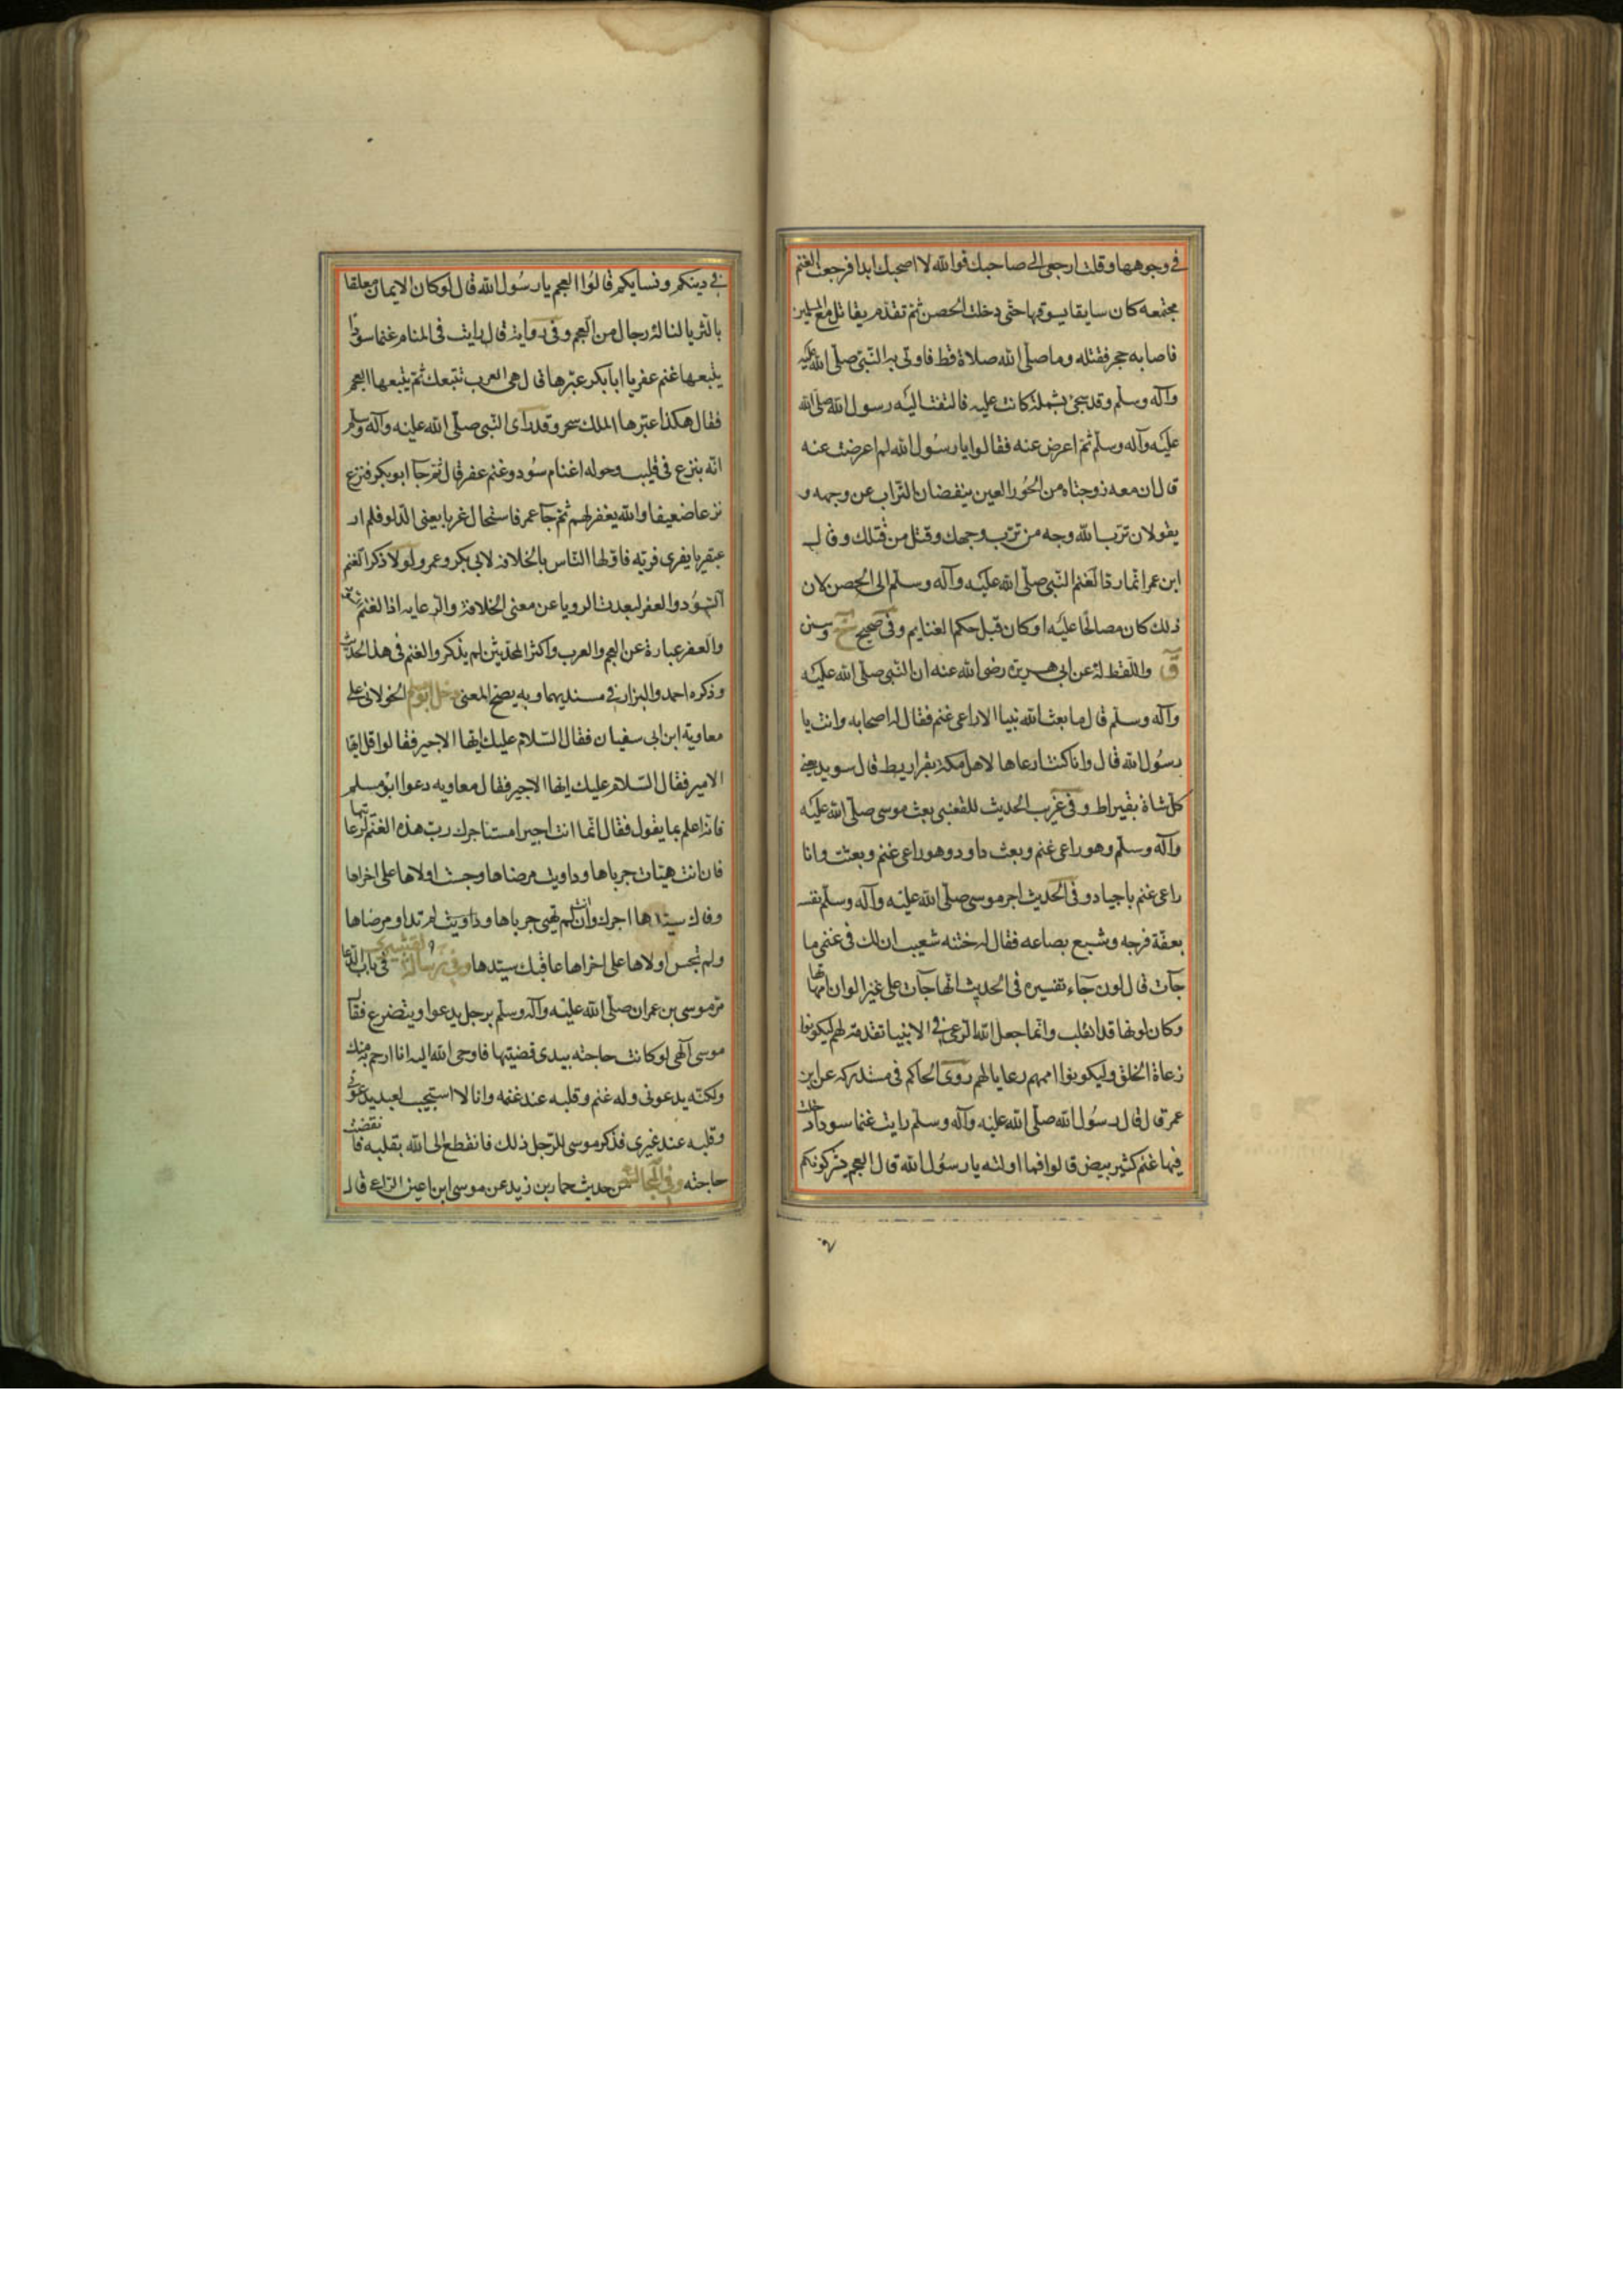 في وجوهها وقلت ارجعي الى صاحبك فوالله لا اصحبك ابدا فرجعت الغنم
مجتمعه كان سايقا يسوقها حتى دخلت الحصن ثم تقدم يقاتل مع المسلمين
فاصابه حجر فقتله وما صلى الله صلاة قط فاوتي به النبي صلى الله عليه
وآله وسلم وقد سجى بشملة كانت عليه فالتفت اليه رسول الله صلى الله
عليه وآله وسلم ثم اعرض عنه فقالوا يا رسول الله لم اعرضت عنه
قال ان معه زوجتاه من الحور العين ينفضان التراب عن وجهه و
يقولان ترب الله وجه من ترب وجهك وقتل من قتلك وقال
ابن عمر انما رد الغنم النبي صلى الله عليه وآله وسلم الى الحصن لان
ذلك كان مصالحا عليه او كان قبل حكم الغنايم وفي صحيح خ وسنن
ق واللفظ له عن ابي هريرة رضى الله عنه ان النبي صلى الله عليه
وآله وسلم قال ما بعث الله نبيا الا راعى غنم فقال له اصحابه وانت يا
رسول الله قال وانا كنت ارعاها لاهل مكة بقراريط قال سويد يعني
كل شاة بقيراط وفي غريب الحديث للقعنبي بعث موسى صلى الله عليه
وآله وسلم وهو راعى غنم وبعث داود وهو راعى غنم وبعثت وانا
راعى غنم باجياد وفي الحديث اجر موسى صلى الله عليه وآله وسلم نفسه
بعفة فرجه وشبع بطنه فقال له ختنه شعيب ان لك في غنمى ما
جآت قالب لون جاء تفسيره في الحديث انها جآت على غير الوان امهاتها
وكان لونها قد انقلب وانما جعل الله الرعى في الانبيا تقدمة لهم ليكونوا
رعاة الخلق وليكونوا اممهم رعايا لهم روى الحاكم في مستدركه عن ابن
عمر قال قال رسول الله صلى الله عليه وآله وسلم رايت غنما سودا دخلت
فيها غنم كثير بيض قالوا فما اولته يا رسول الله قال العجم يشركونكم
في
في دينكم ونسايكم قالوا العجم يا رسول الله قال لو كان الايمان معلقا
بالثريا لناله رجال من العجم وفي رواية قال رايت في المنام غنما سودا
يتبعها غنم عفر يا ابا بكر عبرها قال هى العرب تتبعك ثم يتبعها العجم
فقال هكذا عبرها الملك سحر وقد راى النبي صلى الله عليه وآله وسلم
انه ينزع في قليب وحوله اغنام سود وغنم عفر قال ثم جآ ابو بكر فنزع
نزعا ضعيفا والله يغفر لهم ثم جآ عمر فاستحال غربا يعنى الدلو فلم ار
عبقريا يفرى فريه فاولها الناس بالخلافه لابي بكر وعمر ولولا ذكر الغنم
السود والعفر لبعدت الرويا عن معنى الخلافة والرعايه اذ الغنم
والعفر عبارة عن العجم والعرب واكثر المحدثين لم يذكروا الغنم في هذا الحديث
وذكره احمد والبزار في مسنديهما وبه يصح المعنى دخل ابو مسلم الخولاني على
معاوية ابن ابى سفيان فقال السلام عليك ايها الاجير فقالوا قل ايها
الامير فقال السلام عليك ايها الاجير فقال معاويه دعوا ابو مسلم
فانه اعلم بما يقول فقال انما انت اجير استاجرك رب هذه الغنم لرعايتها
فان انت هنات جرباها وداويت مرضاها وحبست اولاها على اخراها
وفاك سيدها اجرك وان انت لم تهنى جرباها ولم تداو مرضاها
ولم تحبس اولاها على اخراها عاقبك سيدها وفي رسالة القشيري في باب الدعا
مر موسى بن عمران صلى الله عليه وآله وسلم برجل يدعوا ويتضرع فقال
موسى الهى لو كانت حاجته بيدى قضيتها فاوحى الله اليه انا ارحم به منك
ولكنه يدعونى وله غنم وقلبه عند غنمه وانا لا استجيب لعبد يدعونى
وقلبه عند غيرى فذكر موسى للرجل ذلك فانقطع الى الله بقلبه فانقضت
حاجته وفي المجالسة من حديث حماد بن زيد عن موسى ابن اعين الراعى قال